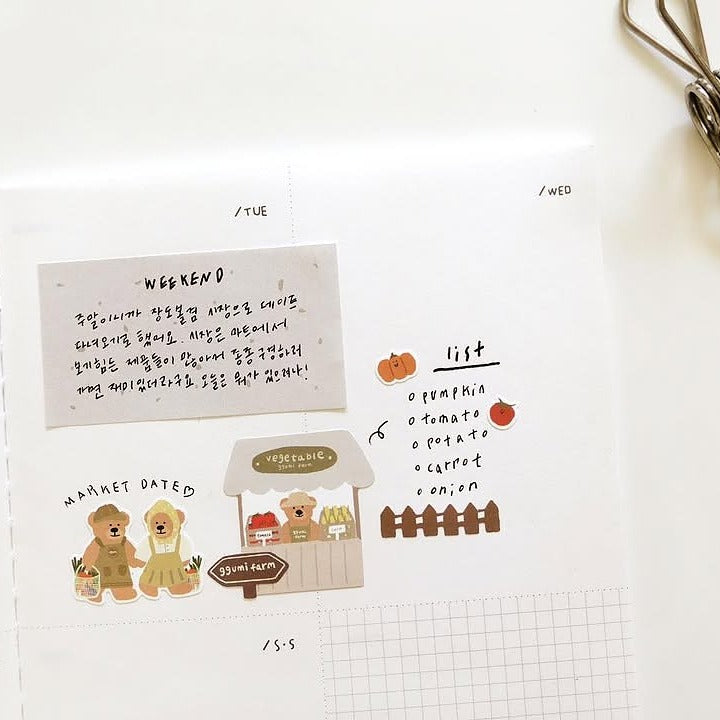 /TUE
/WED
WEEKEND
주말이니까 장도볼겸 시장으로 데이트
다녀오기로 했어요. 시장은 마트에서
보기힘든 제품들이 많아서 종종 구경하러
가면 재미있더라구요 오늘은 뭐가 있으려나!
list
o pumpkin
o tomato
o potato
o carrot
o onion
MARKET DATE♡
vegetable
ggumi farm
tomato
ggumi
farm
corn
ggumi farm
/S·S